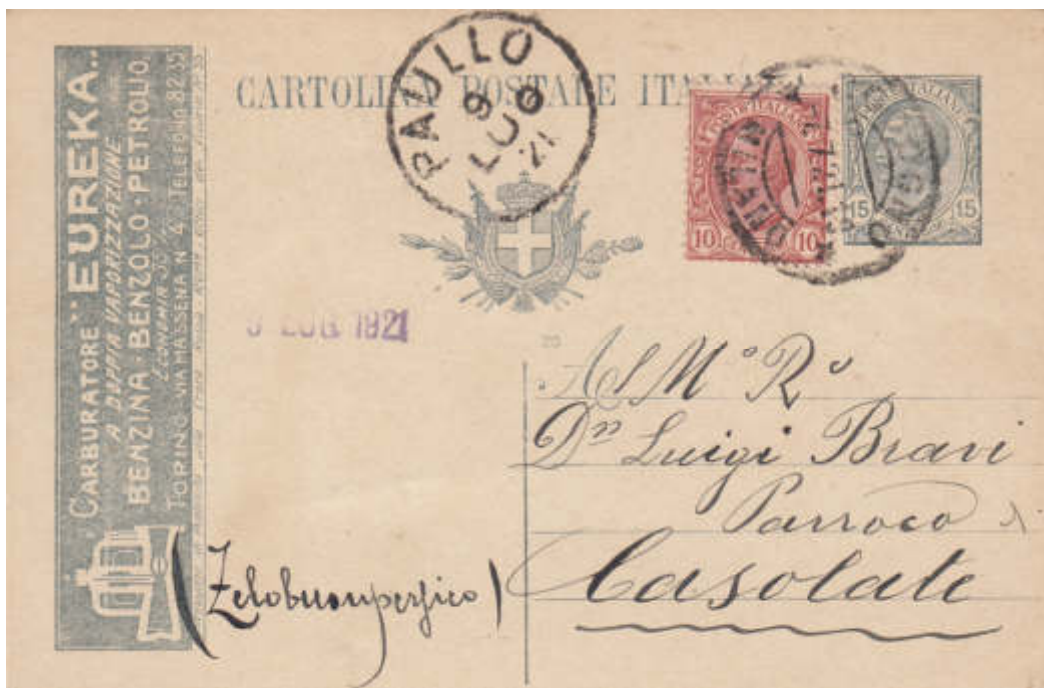 CARBURATORE "EUREKA"
A DOPPIA VAPORIZZAZIONE
BENZINA·BENZOLO·PETROLIO
ECONOMIA
TORINO VIA MASSENA, N. 42 TELEFONO 32-55
CARTOLINA POSTALE ITALIANA
PAULLO
9
LUG
21
POSTE ITALIANE
10 10
POSTE ITALIANE
15 15
MILANO
9 LUG 1921
20
Al M° R°
Dn Luigi Bravi
Parroco
Casolate
(Zelobuonpersico)